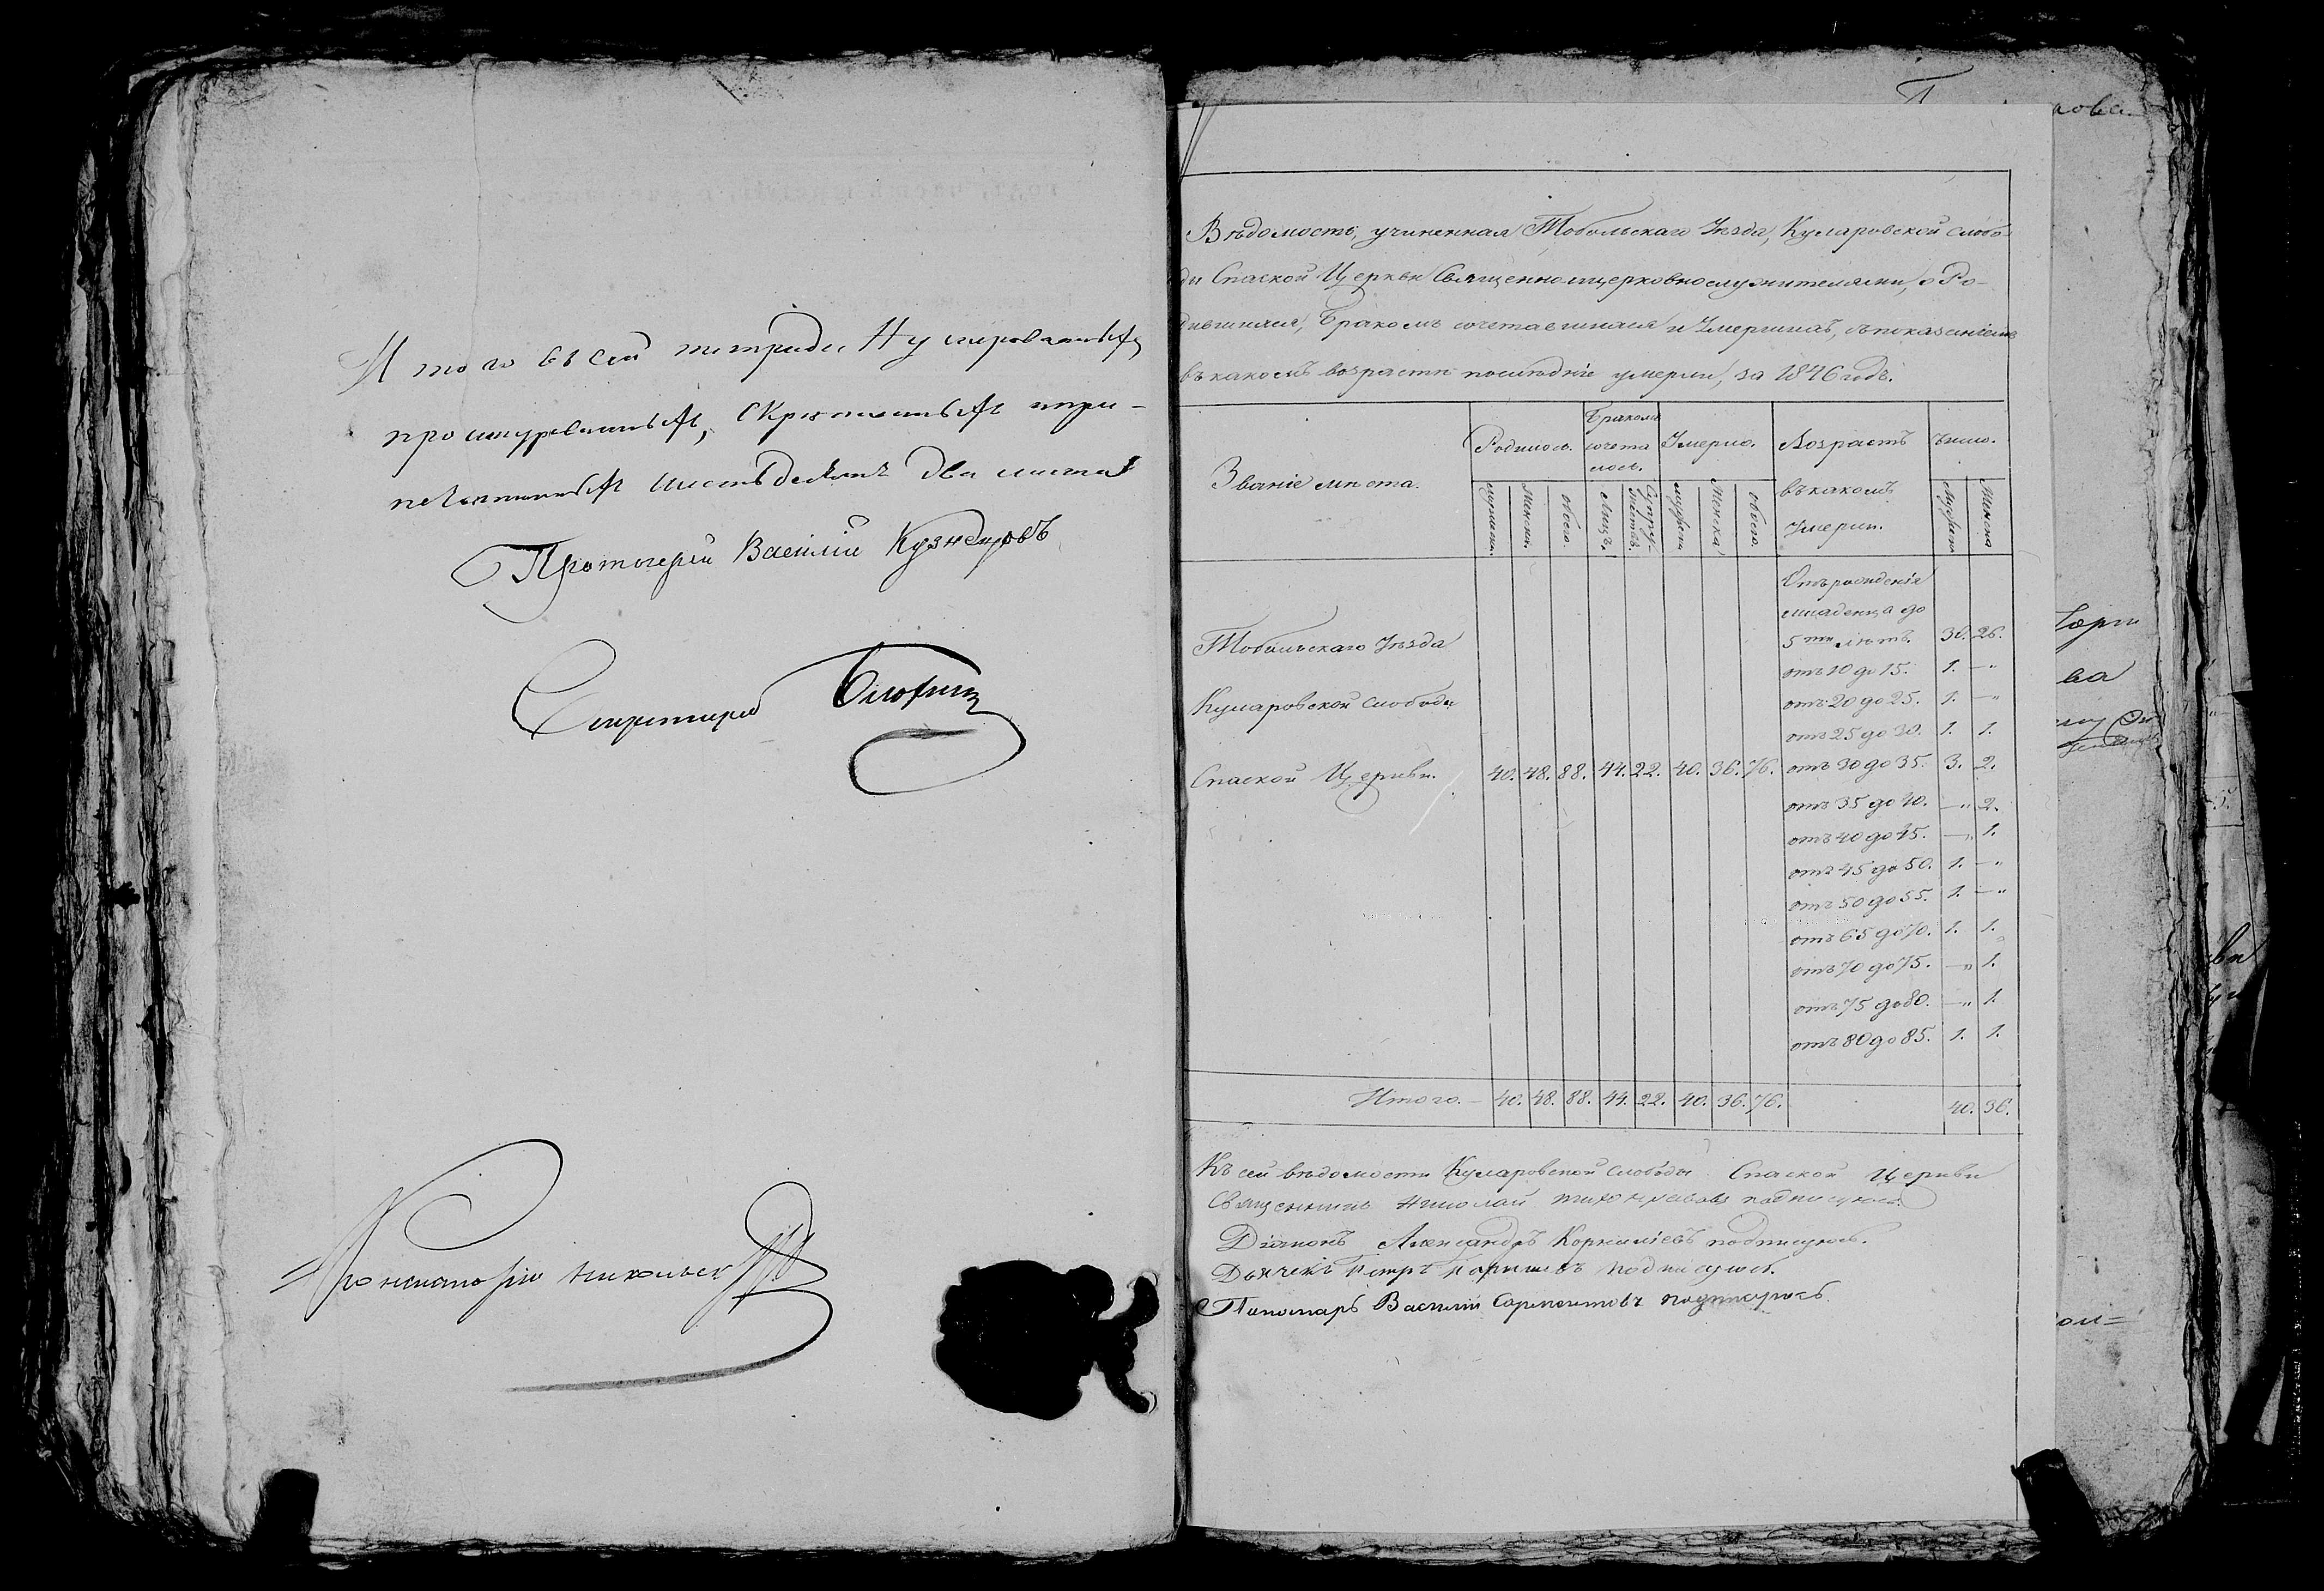 Итого въ сей тетради Нумерованныхъ
прошнурованныхъ, скрѣпленныхъ и при-
печатанныхъ шестьдесятъ два листа
Протоіерей Василій Кузнецовъ
Секретарь
Вѣдомость, учиненная Тобольскаго Уѣзда, Куларовской слобо-
ды Спаской Церкви Священно-ицерковнослужителями, о Ро-
дившихся, Бракомъ сочетавшихся и Умершихъ, съпоказаніемъ
въ какомъ возрастѣ послѣдніе умерли, за 1846 годъ.
Званіе мѣста.
Родилось.
Бракомъ
сочета
лось.
Умерло.
Возрастъ
въ какомъ
Умерли.
Число.
мужеска.
женска.
обоего.
Лицъ.
Супру-
жествъ.
мужеска
Женска
обоего.
Мужеска
Женска
Тобольскаго Уѣзда
Куларовской слободы
Спаской Церкви. 40. 48. 88. 44. 22. 40. 36. 76.
Отърожденія
младенца до
5ти лѣтъ. 30. 26.
отъ 10 до 15. 1. —"
отъ 20 до 25. 1. —"
отъ 25 до 30. 1. 1.
отъ 30 до 35. 3. 2.
отъ 35 до 40. —" 2.
отъ 40 до 45. —" 1.
отъ 45 до 50. 1. —"
отъ 50 до 55. 1. —"
отъ 65 до 70. 1. 1.
отъ 70 до 75. —" 1.
отъ 75 до 80. —" 1.
отъ 80 до 85. 1. 1.
Итого. — 40. 48. 88. 44. 22. 40. 36. 76. 40. 36.
Къ сей вѣдомости Куларовской слободы Спаской Церкви
Священникъ Николай подписуюсь.
Діаконъ Александръ Корниліевъ подписуюсь.
Дьячекъ Петръ подписуюсь.
Пономарь Василій подписуюсь